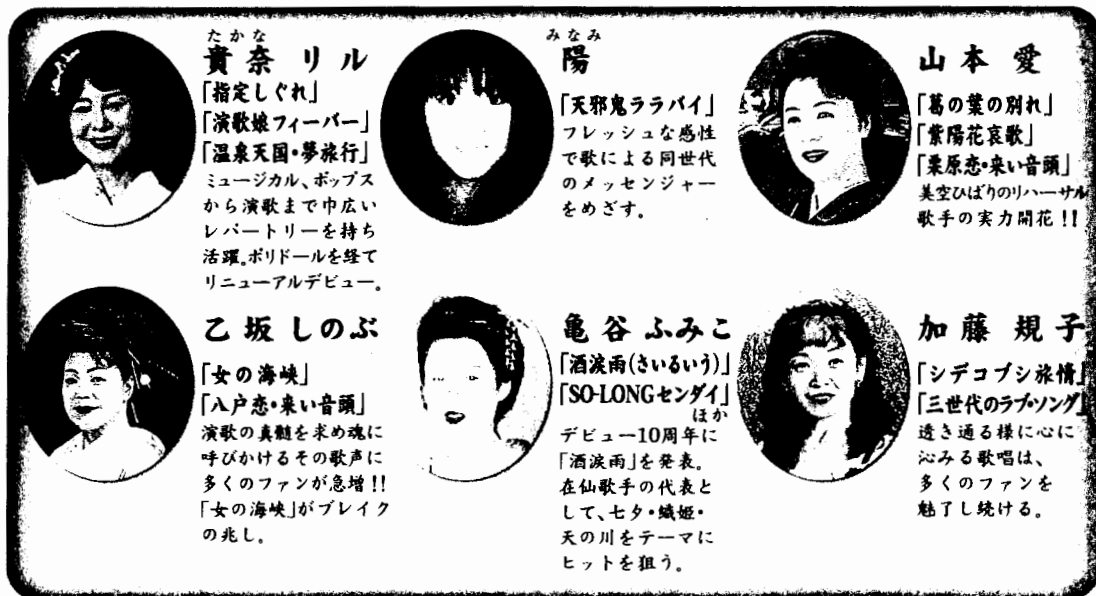 たかな
貴奈 リル
「指定しぐれ」
「演歌娘フィーバー」
「温泉天国・夢旅行」
ミュージカル、ポップス
から演歌まで巾広い
レパートリーを持ち
活躍。ポリドールを経て
リニューアルデビュー。
みなみ
陽
「天邪鬼ララバイ」
フレッシュな感性
で歌による同世代
のメッセンジャー
をめざす。
山本 愛
「葛の葉の別れ」
「紫陽花哀歌」
「栗原恋・来い音頭」
美空ひばりのリハーサル
歌手の実力開花!!
乙坂 しのぶ
「女の海峡」
「八戸恋・来い音頭」
演歌の真髄を求め魂に
呼びかけるその歌声に
多くのファンが急増!!
「女の海峡」がブレイク
の兆し。
亀谷 ふみこ
「酒涙雨(さいるいう)」
「SO-LONGセンダイ」
ほか
デビュー10周年に
「酒涙雨」を発表。
在仙歌手の代表と
して、七夕・織姫・
天の川をテーマに
ヒットを狙う。
加藤 規子
「シデコブシ旅情」
「三世代のラブ・ソング」
透き通る様に心に
沁みる歌唱は、
多くのファンを
魅了し続ける。